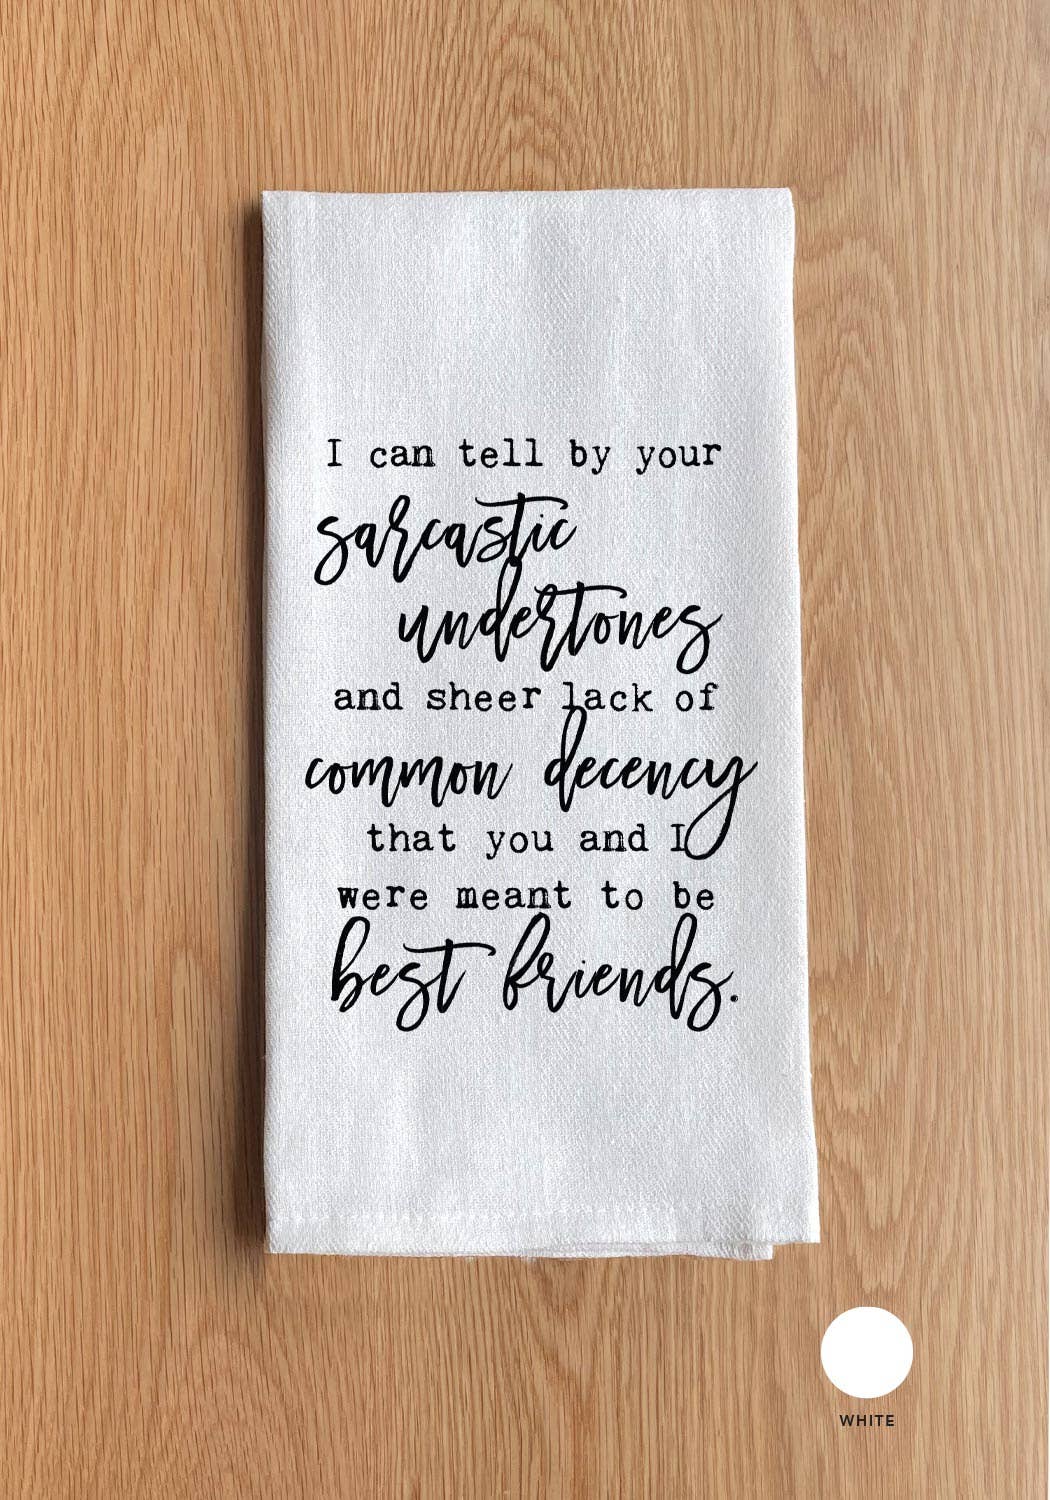 I can tell by your
sarcastic
undertones
and sheer lack of
common decency
that you and I
were meant to be
best friends.
WHITE